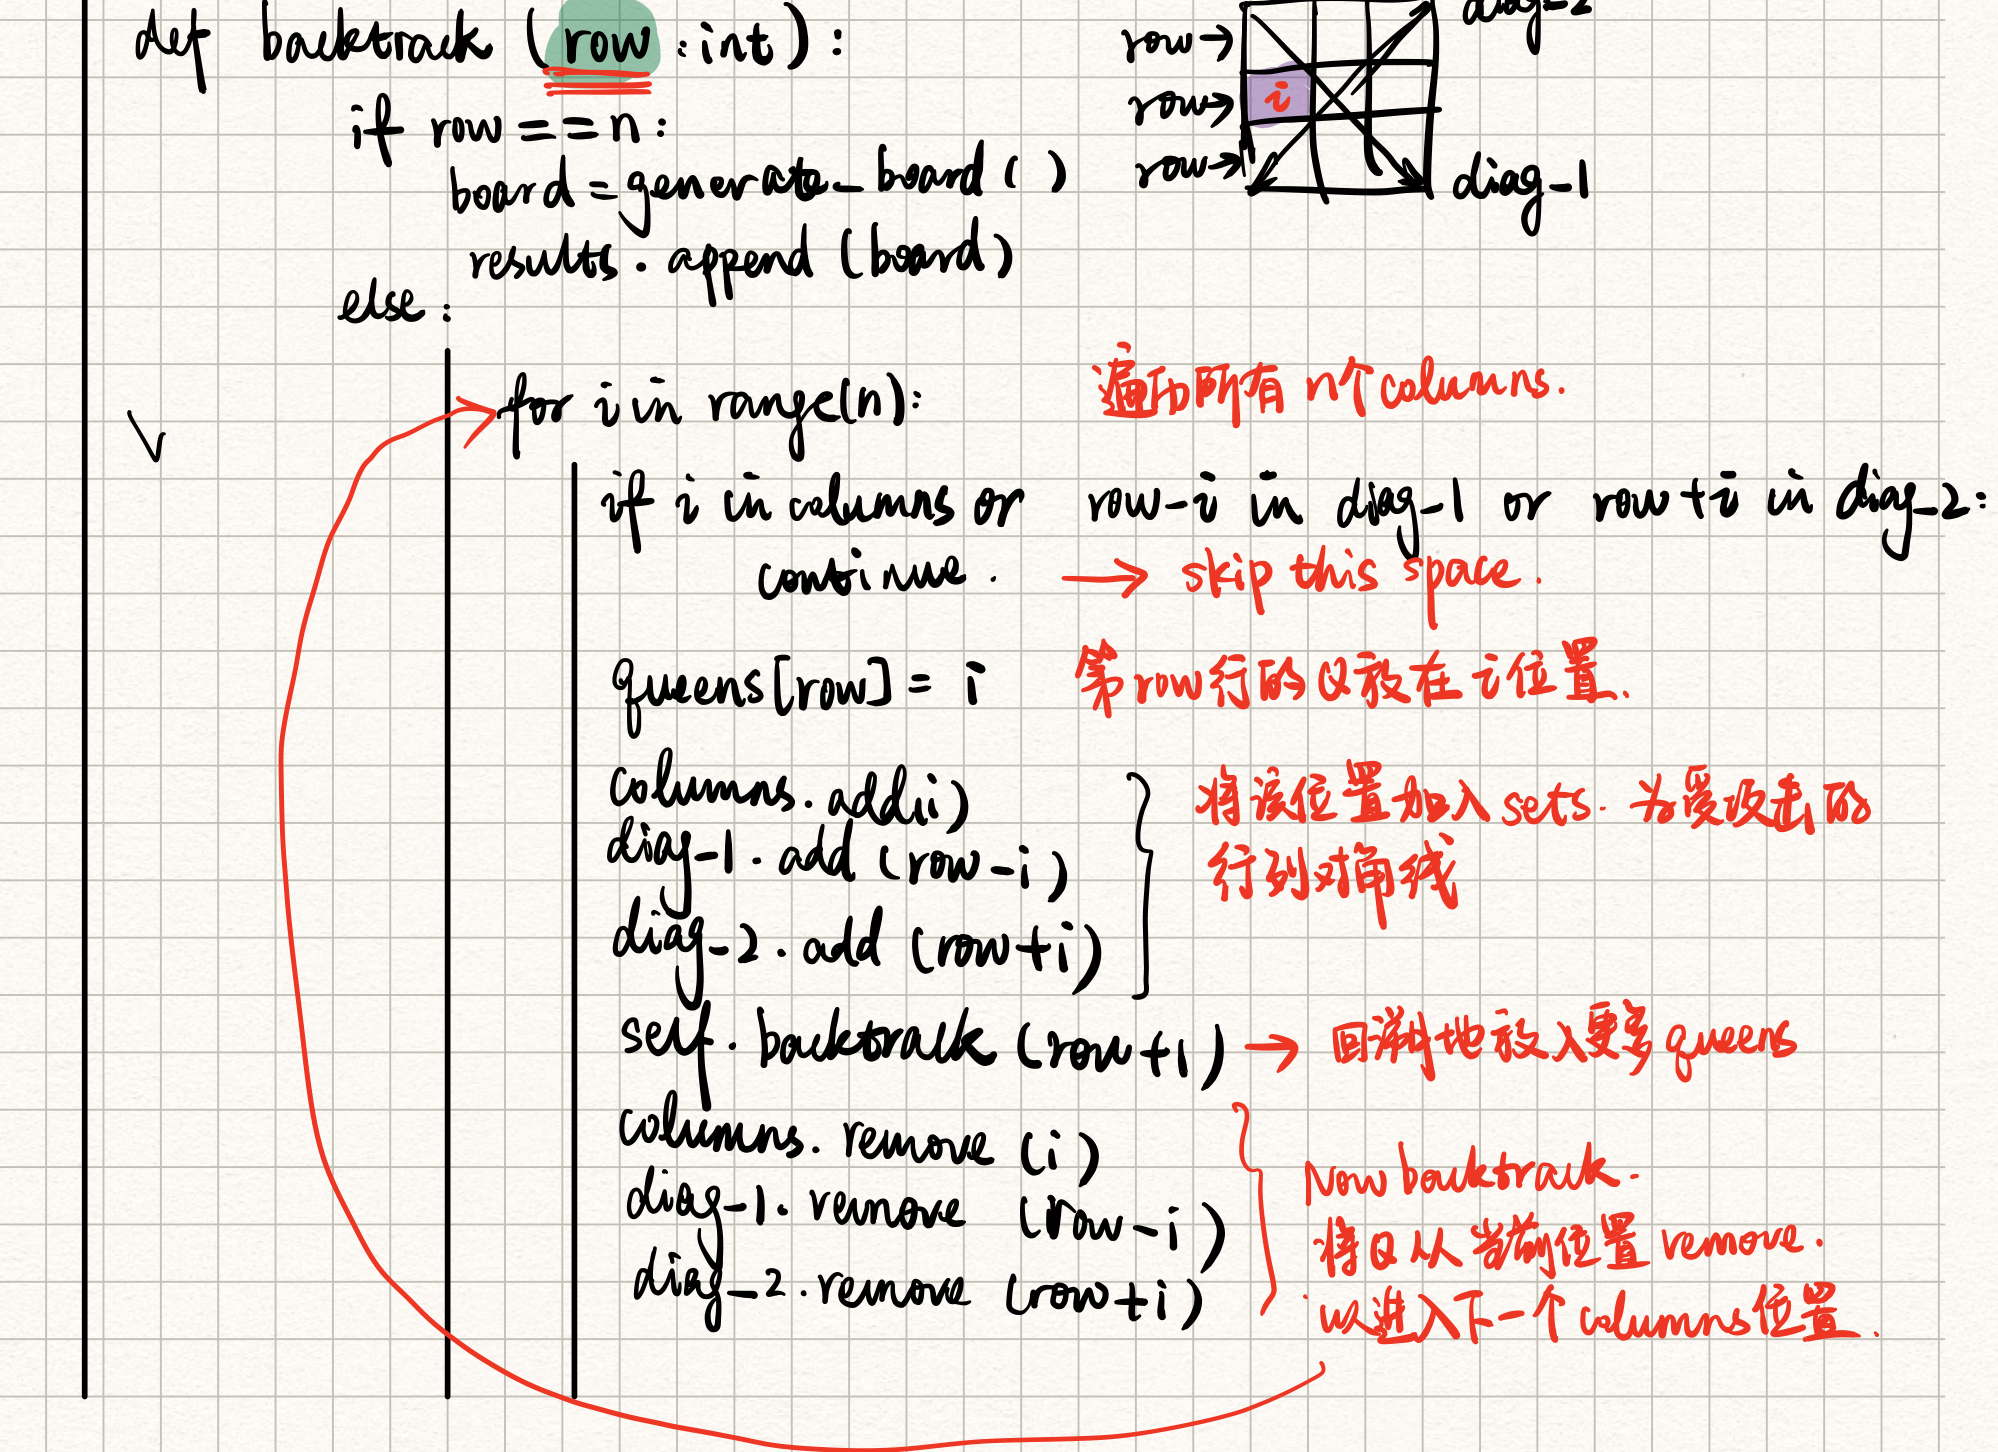 def backtrack (row:int):
row→
diag-2
row→
i
row→
diag-1
if row==n:
board = generate_board ( )
results. append (board)
else:
for i in range(n): 遍历所有n个columns.
if i in columns or row-i in diag-1 or row+i in diag-2:
continue. → skip this space.
queens[row] = i 第row行的Q放在i位置.
columns. add(i)
diag-1. add (row-i)
diag-2. add (row+i)
将该位置加入sets. 为受攻击的
行列对角线
self. backtrack (row+1) → 回溯地放入更多queens
columns. remove (i)
diag-1. remove (row-i)
diag-2. remove (row+i)
Now backtrack.
将Q从当前位置remove.
以进入下一个columns位置.